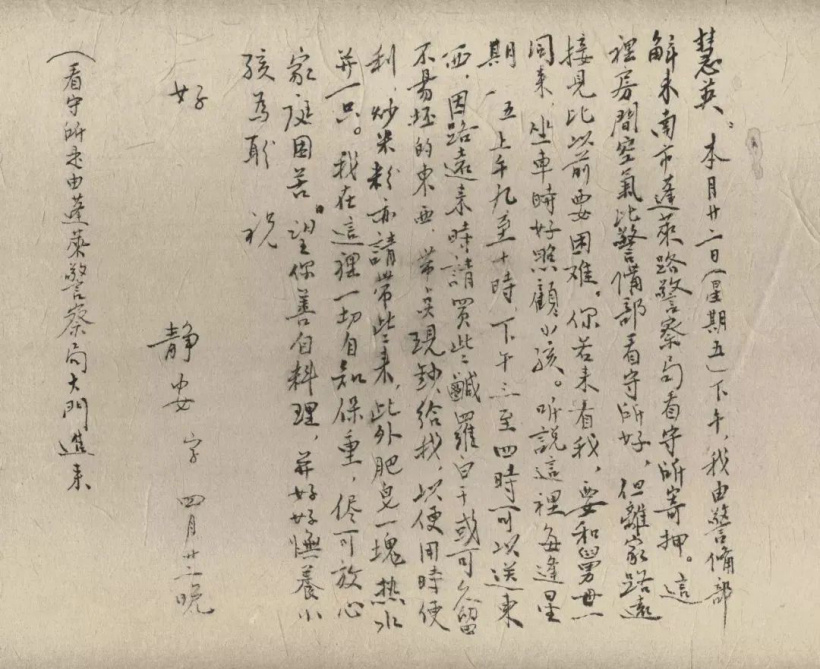 慧英。本月廿二日(星期五)下午，我由警備部
解来南市蓬萊路警察局看守所寄押。這
裡房間空氣比警備部看守所好，但離家路遠
接見比以前要困难。你若来看我，要和舅母
同来，坐車時好照顧小孩。听說這裡每逢星
期一、五上午九至十時，下午三至四時可以送東
西，因路遠来時請買些鹹蘿白干或可久留
不易坯的東西，带点現鈔給我，以便用時便
利，炒米粉亦請带些来，此外肥皂一塊熱水
并一只。我在這裡一切自知保重，侭可放心
家庭困苦。望你善自料理，并好好撫養小
孩為盼 祝
好
静安字 四月廿二晚
(看守所是由蓬萊警察局大門進来